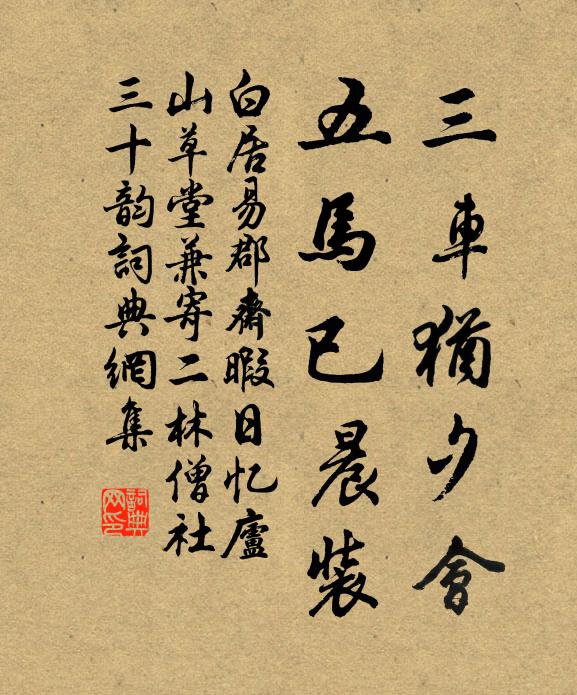 三車猶夕會
五馬已晨裝
白居易郡齋暇日忆廬
山草堂兼寄二林僧社
三十韵詞典網集
詞典
网印